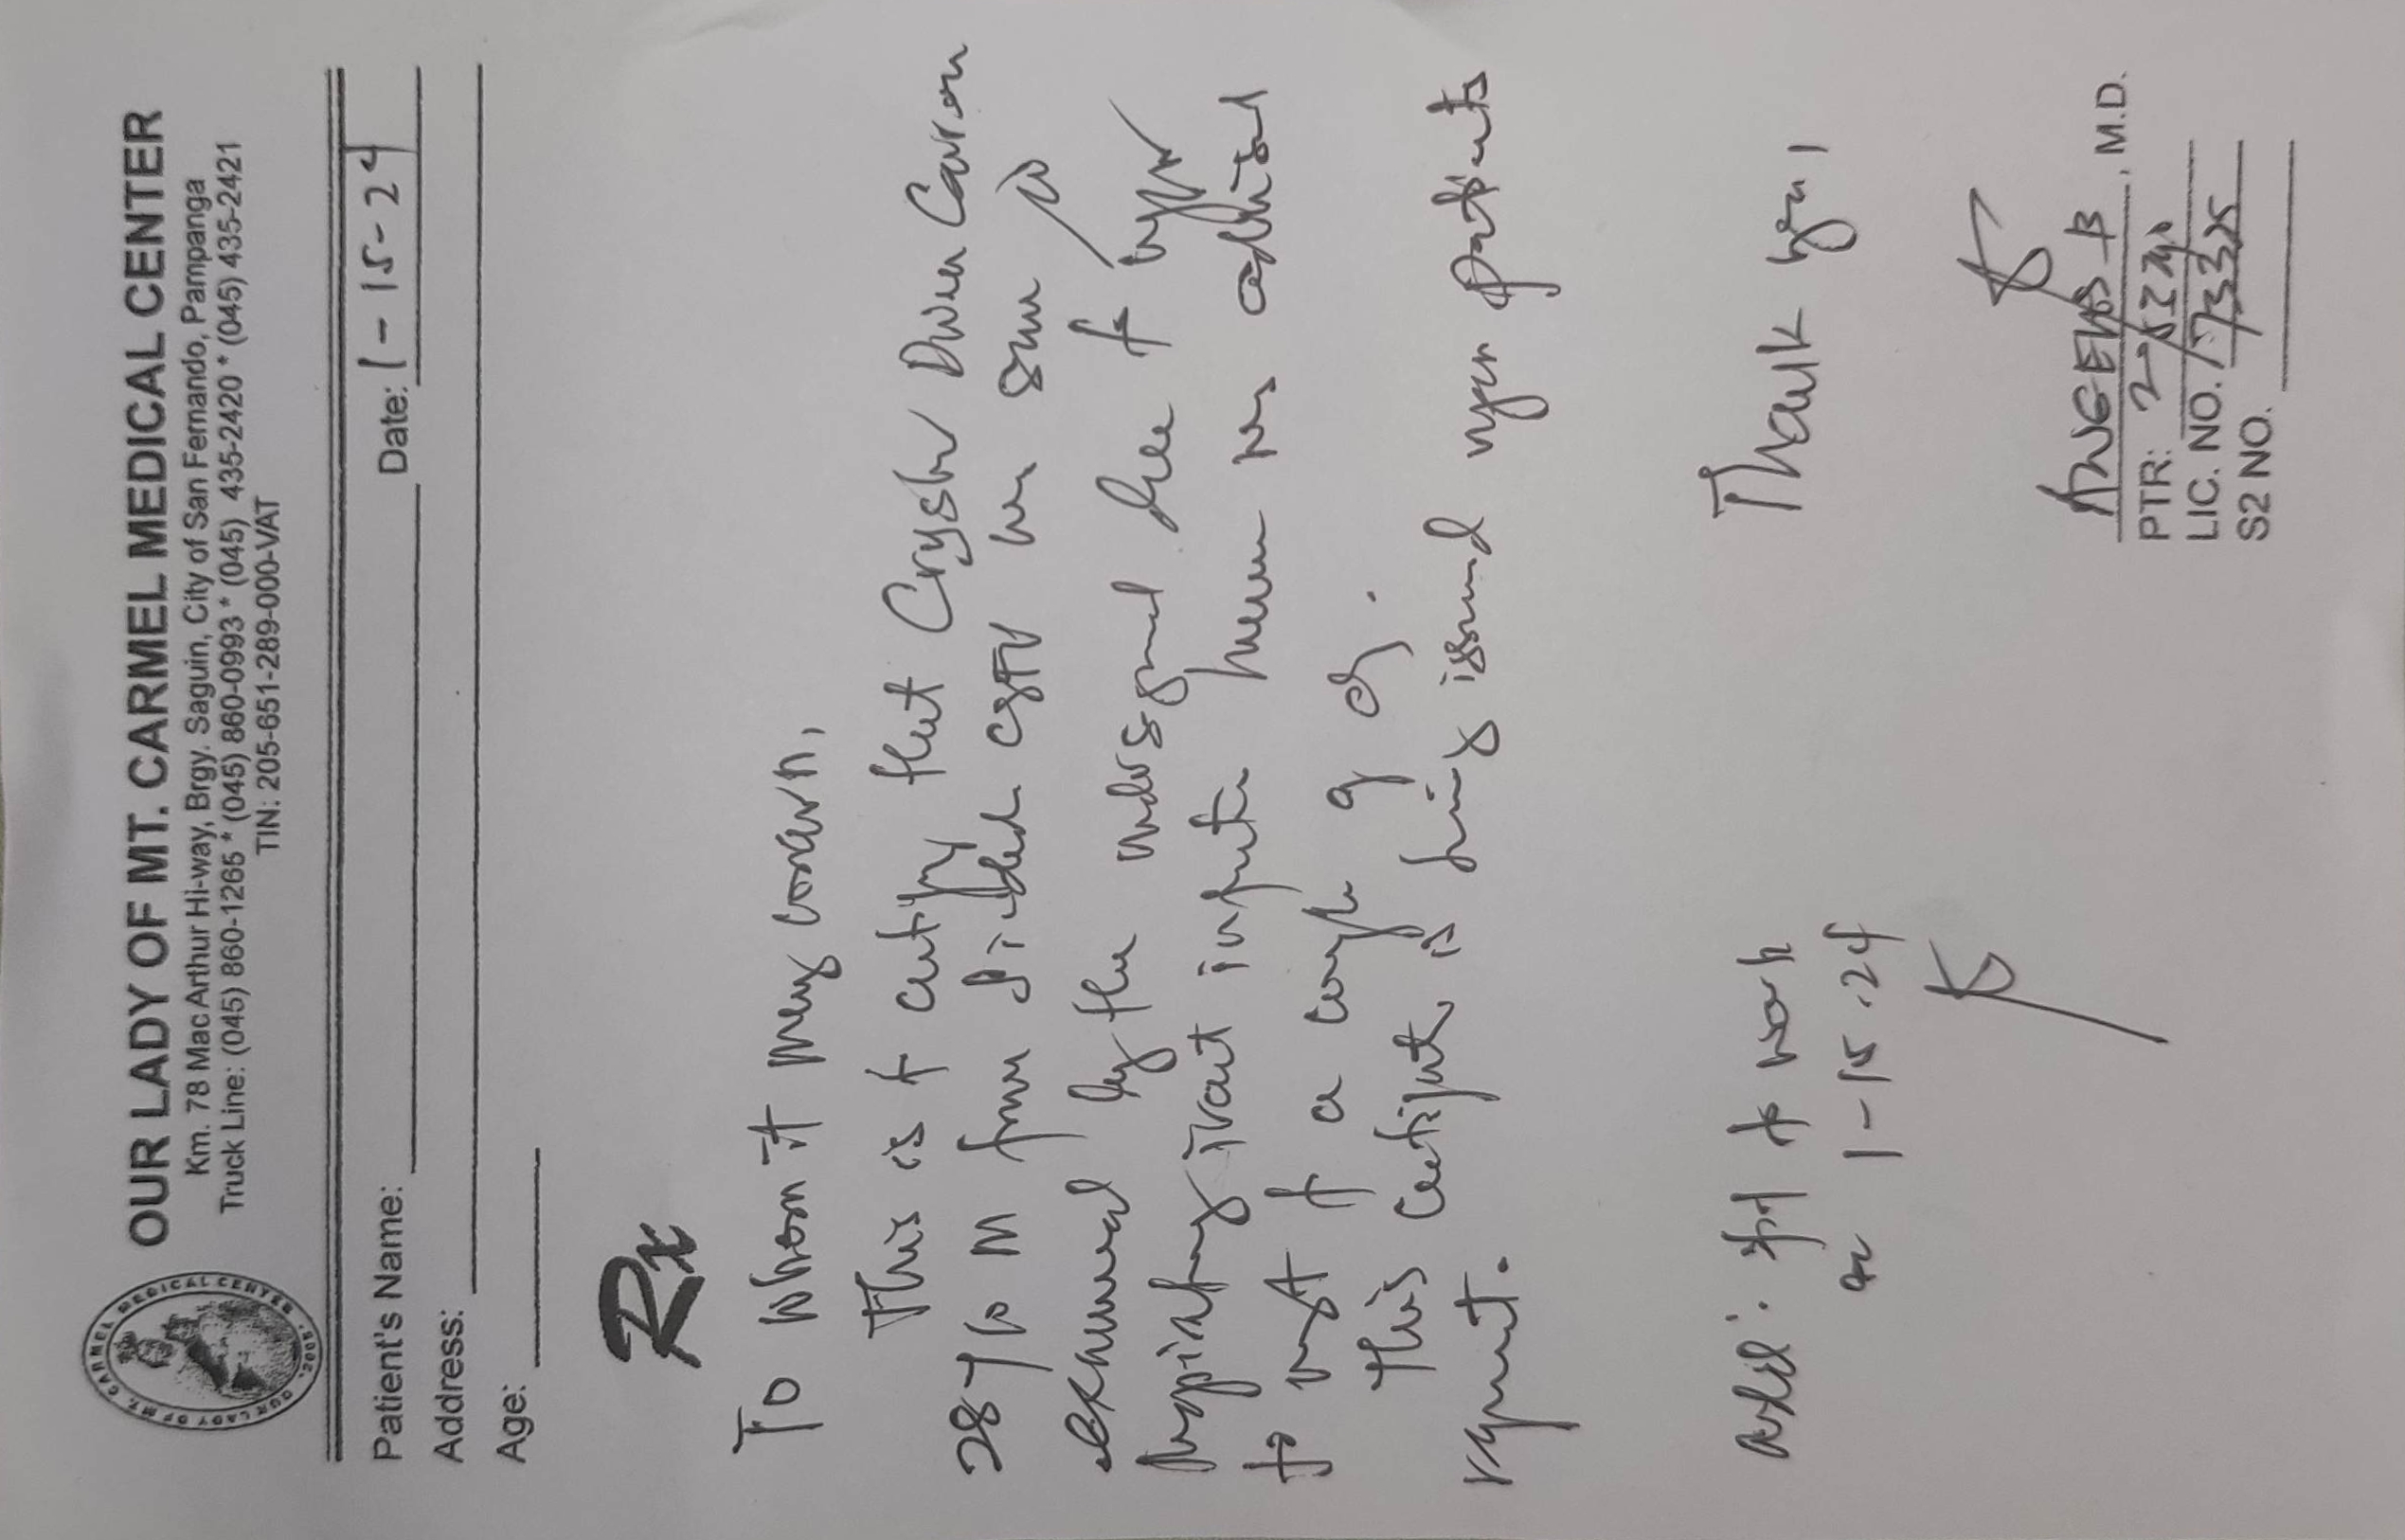 OUR LADY OF MT. CARMEL MEDICAL CENTER
OUR LADY OF MT. CARMEL MEDICAL CENTER
Km. 78 Mac Arthur Hi-way, Brgy. Saguin, City of San Fernando, Pampanga
Truck Line: (045) 860-1265 * (045) 860-0993 * (045) 435-2420 * (045) 435-2421
TIN: 205-651-289-000-VAT
2005
Patient's Name: Date: 1-15-24
Address:
Age:
Rx
To whom it may concern,
This is to certify that Crystler
28 y/o M from CSFP was seen
examined by the undersigned due to upper
respiratory tract infection hence was advised
to rest for a couple of
This certificate is being issued upon patients
request.
Add: fit to work Thank you,
on 1-15-24
ANGELES B, M.D.
PTR:
LIC. NO. 173325
S2 NO.